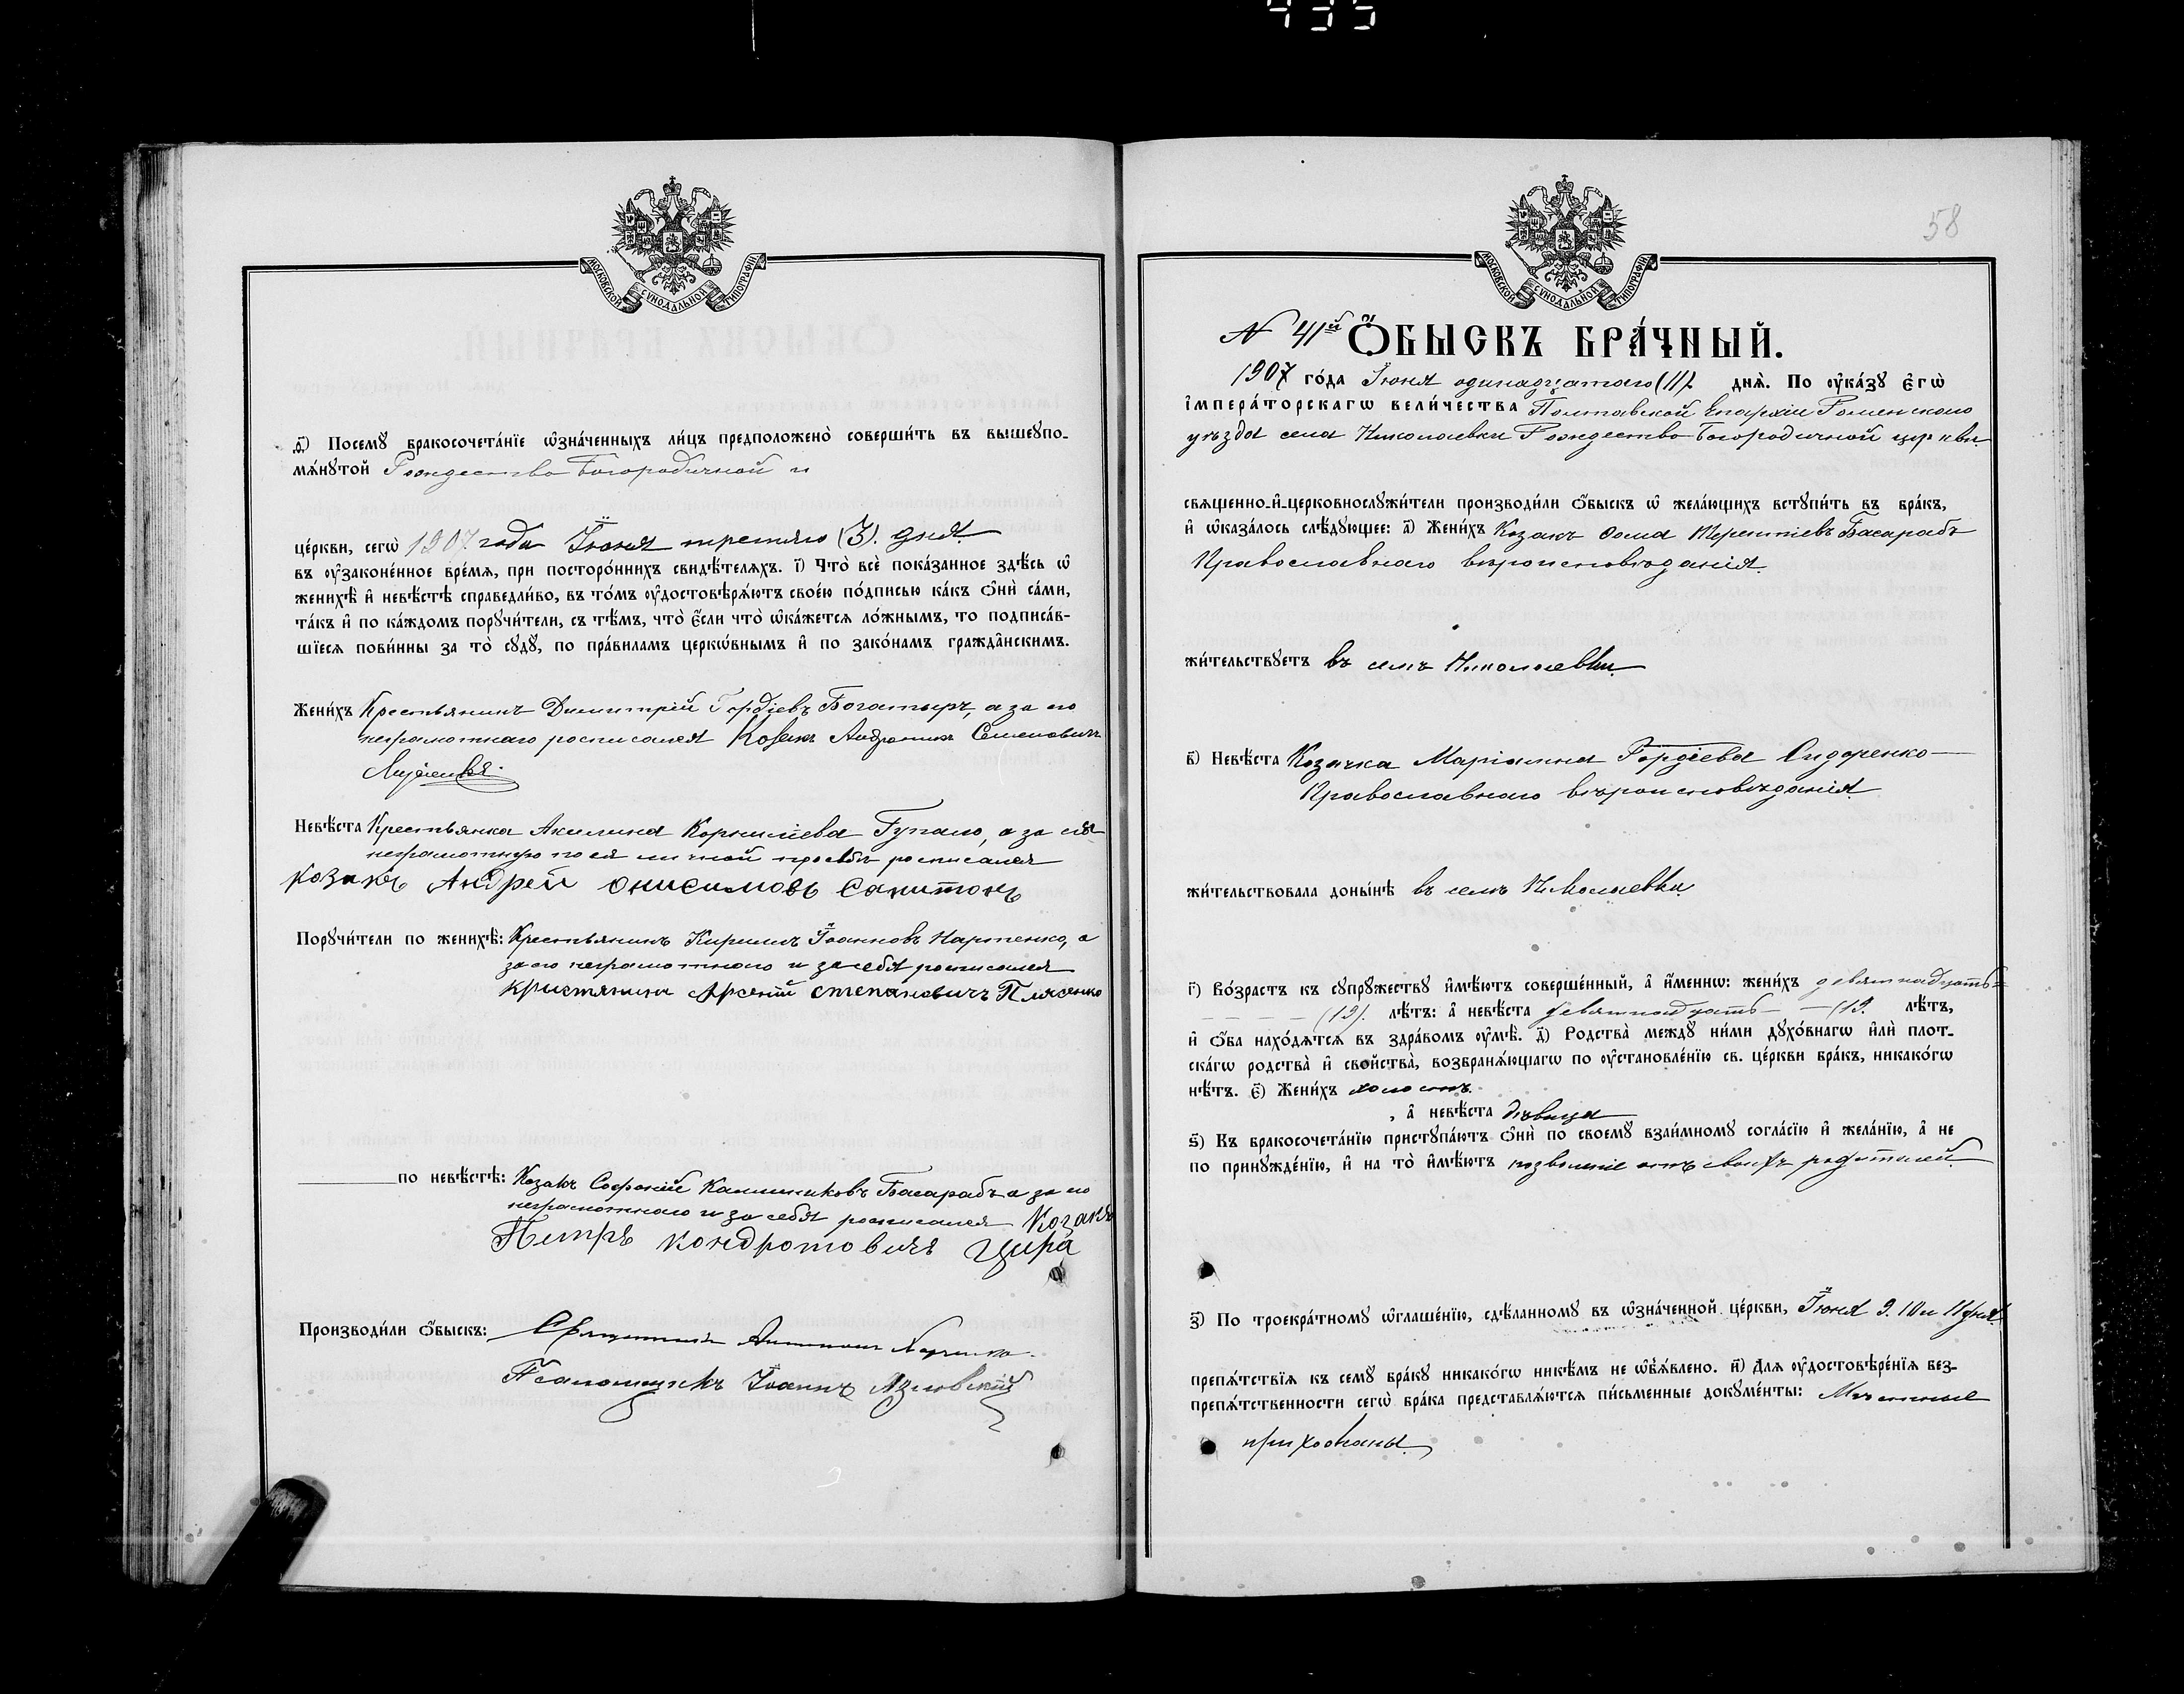 МОСКОВСКОЙ СѴНОДАЛЬНОЙ ТИПОГРАФІИ
ѳ҃) Посемꙋ бракосочета́нїе ѡ҆зна́ченныхъ ли́цъ предположено̀ соверши́ть въ вышеꙋпо-
мѧ́нꙋтой Рождество Богородичной и
це́ркви, сегѡ̀ 1907. года Іюня третьяго (3). дня.
въ ᲂу҆законе́нное вре́мѧ, при посторо́ннихъ свидѣ́телѧхъ. і҃) Что̀ всѐ пока́занное здѣ́сь ѡ҆
женихѣ̀ и҆ невѣ́стѣ справедли́во, въ то́мъ ᲂу҆достовѣрѧ́ютъ свое́ю по́дписью ка́къ ѻ҆нѝ са́ми,
та́къ и҆ по ка́ждомъ порꙋчи́тели, съ тѣ́мъ, что̀ є҆́сли что̀ ѡ҆ка́жетсѧ ло́жнымъ, то подписа́в-
шїесѧ пови́нны за то̀ сꙋдꙋ̀, по пра́виламъ церкѡ́внымъ и҆ по зако́намъ гражда̑нскимъ.
Жени́хъ Крестьянинъ Димитрій Гордіевъ Богатырь, а за его
неграмотнаго росписался Козакъ Андроникъ Семеновичъ
Невѣ́ста Крестьянка Акилина Корниліева Гупало, а за нея
неграмотную по ея личной просьбѣ росписался
козакъ Андрей Онисимовъ Санитонъ
Порꙋчи́тели по женихѣ̀: Крестьянинъ Кирилъ Іоанновъ Нартенко, а
за его неграмотнаго и за себя росписался
Кристянинъ Арсеній степановичъ Плясенко
по невѣ́стѣ: Козакъ Софоній Калиниковъ Басарабъ а за его
неграмотнаго и за себя росписался Козакъ
Петръ кондротовичъ Цира
Производи́ли ѻ҆́быскъ: Священникъ
Псаломщикъ Іоаннъ
58
МОСКОВСКОЙ СѴНОДАЛЬНОЙ ТИПОГРАФІИ
N 41й Ѻ҆́БЫСКЪ БРА́ЧНЫЙ.
1907 го́да Іюня одинадцатаго (11). днѧ̀. По ᲂу҆ка́зꙋ є҆гѡ̀
і҆мпера́торскагѡ вели́чества Полтавской Епархіи Роменскаго
уѣзда села Николаевки Рождество-Богородичной церкви
свѧщенно-и҆-церковнослꙋжи́тели производи́ли ѻ҆́быскъ ѡ҆ жела́ющихъ вступи́ть въ бра́къ,
и҆ ѡ҆каза́лось слѣ́дꙋющее: а҃) Жени́хъ Козакъ Ѳома Терентіевъ Басарабъ
Православнаго вѣроисповѣданія.
жи́тельствꙋетъ въ селѣ Николаевки.
в҃) Невѣ́ста Козачка Маріамна Гордіева Сидоренко
Православнаго вѣроисповѣданія.
жи́тельствовала доны́нѣ въ селѣ Николаевки
г҃) Во́зрастъ къ сꙋпрꙋжествꙋ и҆мѣ́ютъ соверше́нный, а҆ и҆́менно: жени́хъ девятнадцать
(19). лѣ́тъ: а҆ невѣ́ста девятнадцать (19. лѣ́тъ,
и҆ ѻ҆́ба нахо́дѧтсѧ въ здра́вомъ ᲂу҆мѣ̀. д҃) Родства̀ междꙋ ни́ми дꙋхо́внагѡ и҆лѝ плот-
ска́гѡ родства̀ и҆ сво́йства̀, возбранѧ́ющагѡ по ᲂу҆становле́нїю св. це́ркви бра́къ, никако́гѡ
нѣ́тъ. є҃) Жени́хъ холостъ
, а҆ невѣ́ста дѣвица
ѕ҃) Къ бракосочета́нїю пристꙋпа́ютъ ѻ҆нѝ по своемꙋ̀ взаи́мномꙋ согла́сїю и҆ жела́нїю, а҆ не
по принꙋжде́нїю, и҆ на то̀ и҆мѣ́ютъ позволеніе отъ своихъ родителей.
з҃) По троекра́тномꙋ ѡ҆глаше́нїю, сдѣ́ланномꙋ въ ѡ҆зна́ченной це́ркви, Іюня 9. 10 и 11 дня.
препѧ́тствїѧ къ семꙋ̀ бра́кꙋ никако́гѡ никѣ́мъ не ѡ҆б̾ѧ́влено. и҃) Длѧ ᲂу҆достовѣре́нїѧ без-
препѧ́тственности сегѡ̀ бра́ка представлѧ́ютсѧ пи́сьменные докꙋме́нты: Мѣстные
прихожаны.